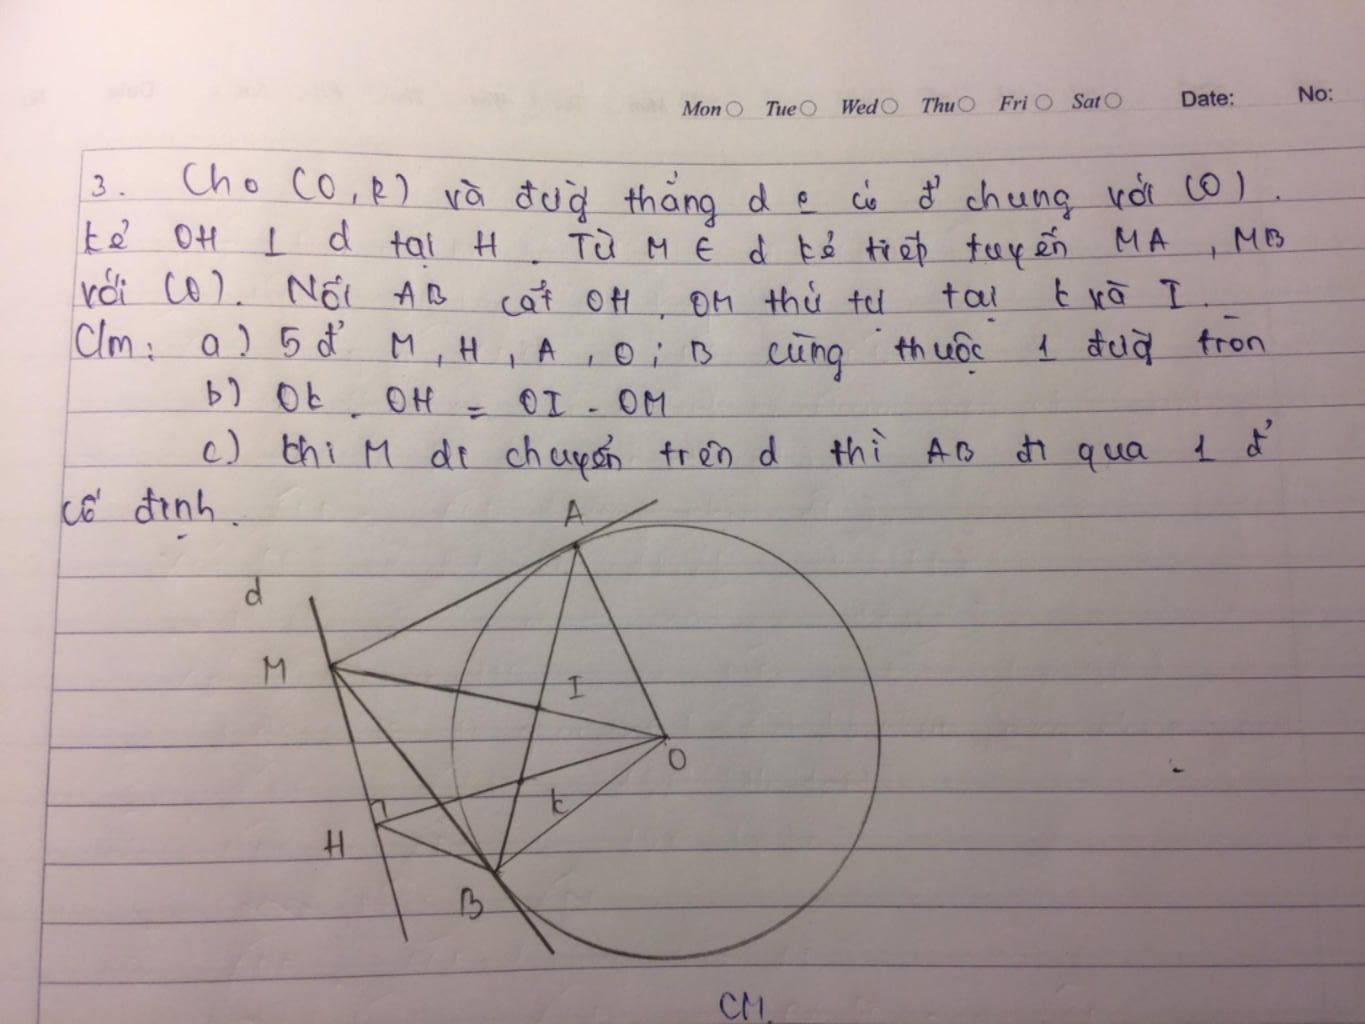 Mon Tue Wed Thu Fri Sat Date: No:
3. Cho (O,R) và đườg thẳng d k có đ' chung với (O).
Kẻ OH ⊥ d tại H. Từ M ∈ d kẻ tiếp tuyến MA, MB
với (O). Nối AB cắt OH, OM thứ tự tại K và I.
C/m: a) 5 đ' M, H, A, O; B cùng thuộc 1 đườg tròn
b) OK . OH = OI . OM
c) Khi M di chuyển trên d thì AB đi qua 1 đ'
cố định.
A
d
M
I
O
K
H
B
CM.